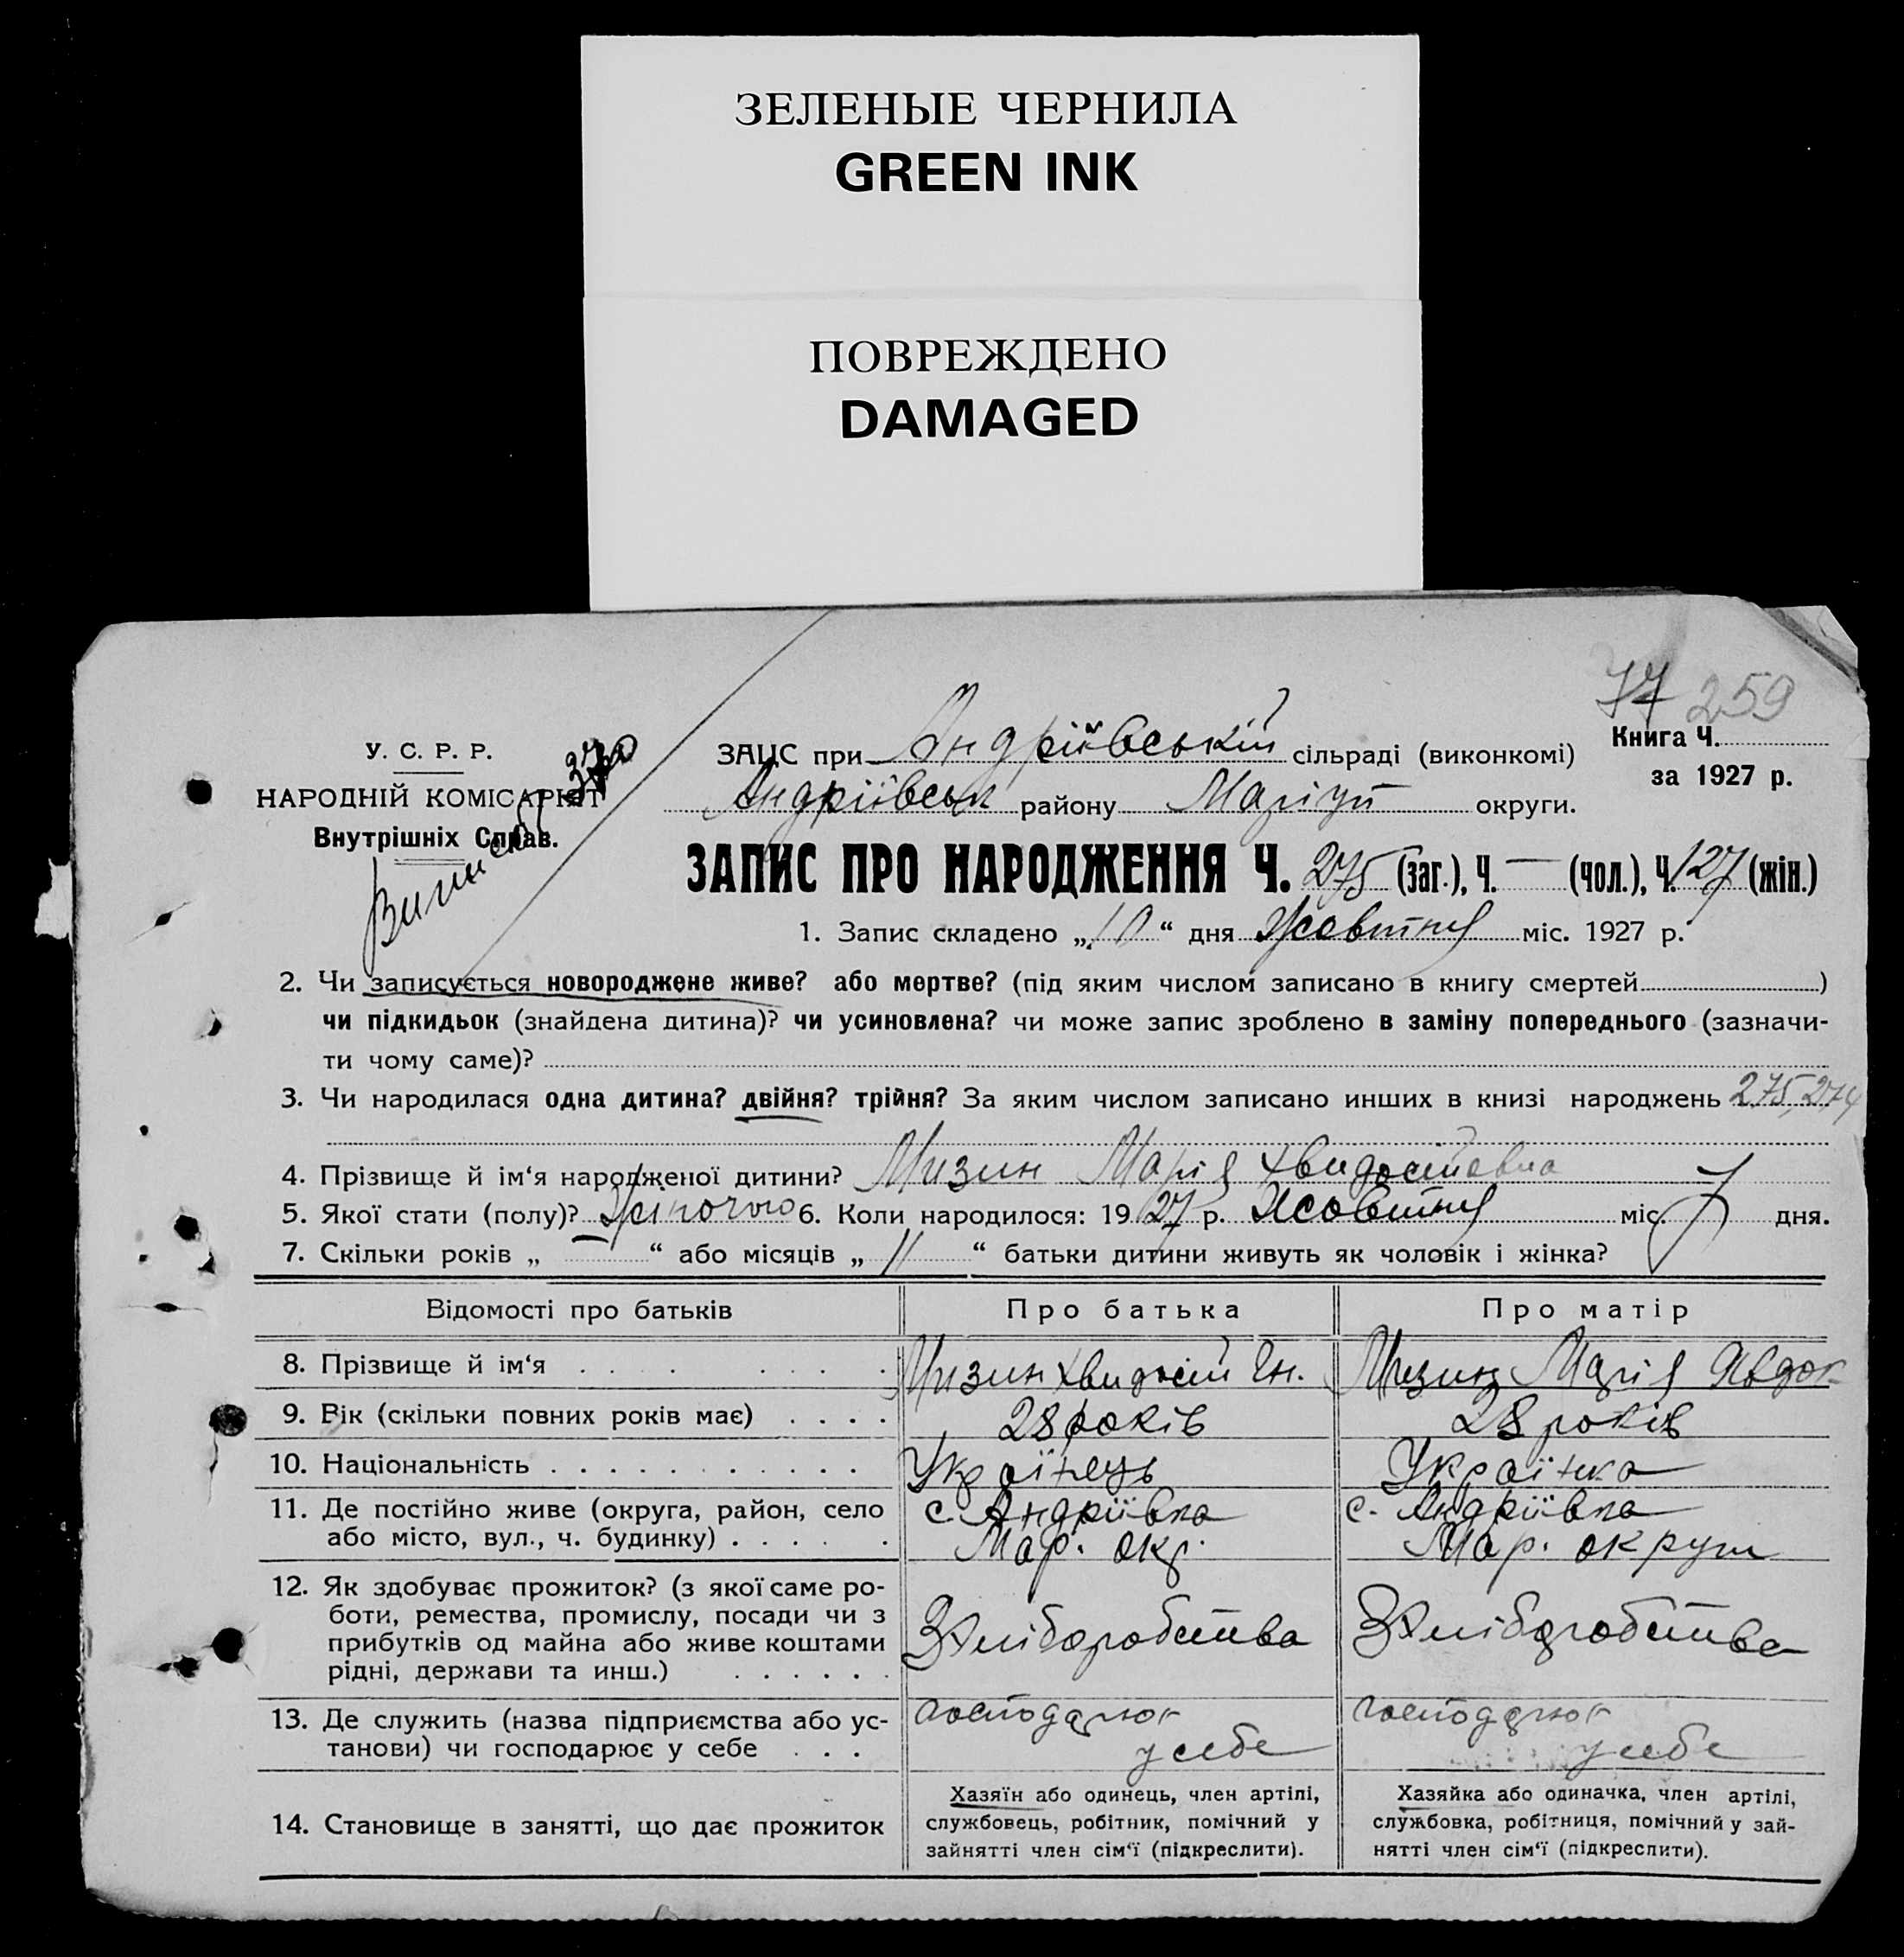 ЗЕЛЕНЫЕ ЧЕРНИЛА
GREEN INK
ПОВРЕЖДЕНО
DAMAGED
77 259
У. С. Р. Р.
НАРОДНІЙ КОМІСАРІЯТ
Внутрішніх Справ.
ЗАЦС при Андріївській сільраді (виконкомі)
Андріївськ району Маріуп округи.
Книга Ч.
за 1927 р.
ЗАПИС ПРО НАРОДЖЕННЯ Ч. 275 (заг.), Ч. — (чол.), Ч. 127 (жін.)
1. Запис складено „10“ дня Жовтня міс. 1927 р.
2. Чи записується новороджене живе? або мертве? (під яким числом записано в книгу смертей)
чи підкидьок (знайдена дитина)? чи усиновлена? чи може запис зроблено в заміну попереднього (зазначи-
ти чому саме)?
3. Чи народилася одна дитина? двійня? трійня? За яким числом записано инших в книзі народжень 275, 274
4. Прізвище й ім‘я народженої дитини? Мизин Марія Хвидосіївна
5. Якої стати (полу)? Жіночого 6. Коли народилося: 1927 р. Жовтня міс. 7 дня.
7. Скільки років „ “ або місяців „ 11 “ батьки дитини живуть як чоловік і жінка?
Відомості про батьків Про батька Про матір
8. Прізвище й ім‘я Мизин Хвидосій Мизин Марія Явдок
9. Вік (скільки повних років має) 28 років 28 років
10. Національність Українець Українка
11. Де постійно живе (округа, район, село с. Андріївка с. Андріївка
або місто, вул., ч. будинку) Мар. окр. Мар. округи
12. Як здобуває прожиток? (з якої саме ро-
боти, ремества, промислу, посади чи з
прибутків од майна або живе коштами
рідні, держави та инш.)
З Хліборобства З Хліборобства
13. Де служить (назва підприємства або ус- господарює господарює
танови) чи господарює у себе у себе у себе
14. Становище в занятті, що дає прожиток
Хазяїн або одинець, член артілі,
службовець, робітник, помічний у
зайнятті член сім‘ї (підкреслити).
Хазяйка або одиначка, член артілі,
службовка, робітниця, помічний у зай-
нятті член сім‘ї (підкреслити).